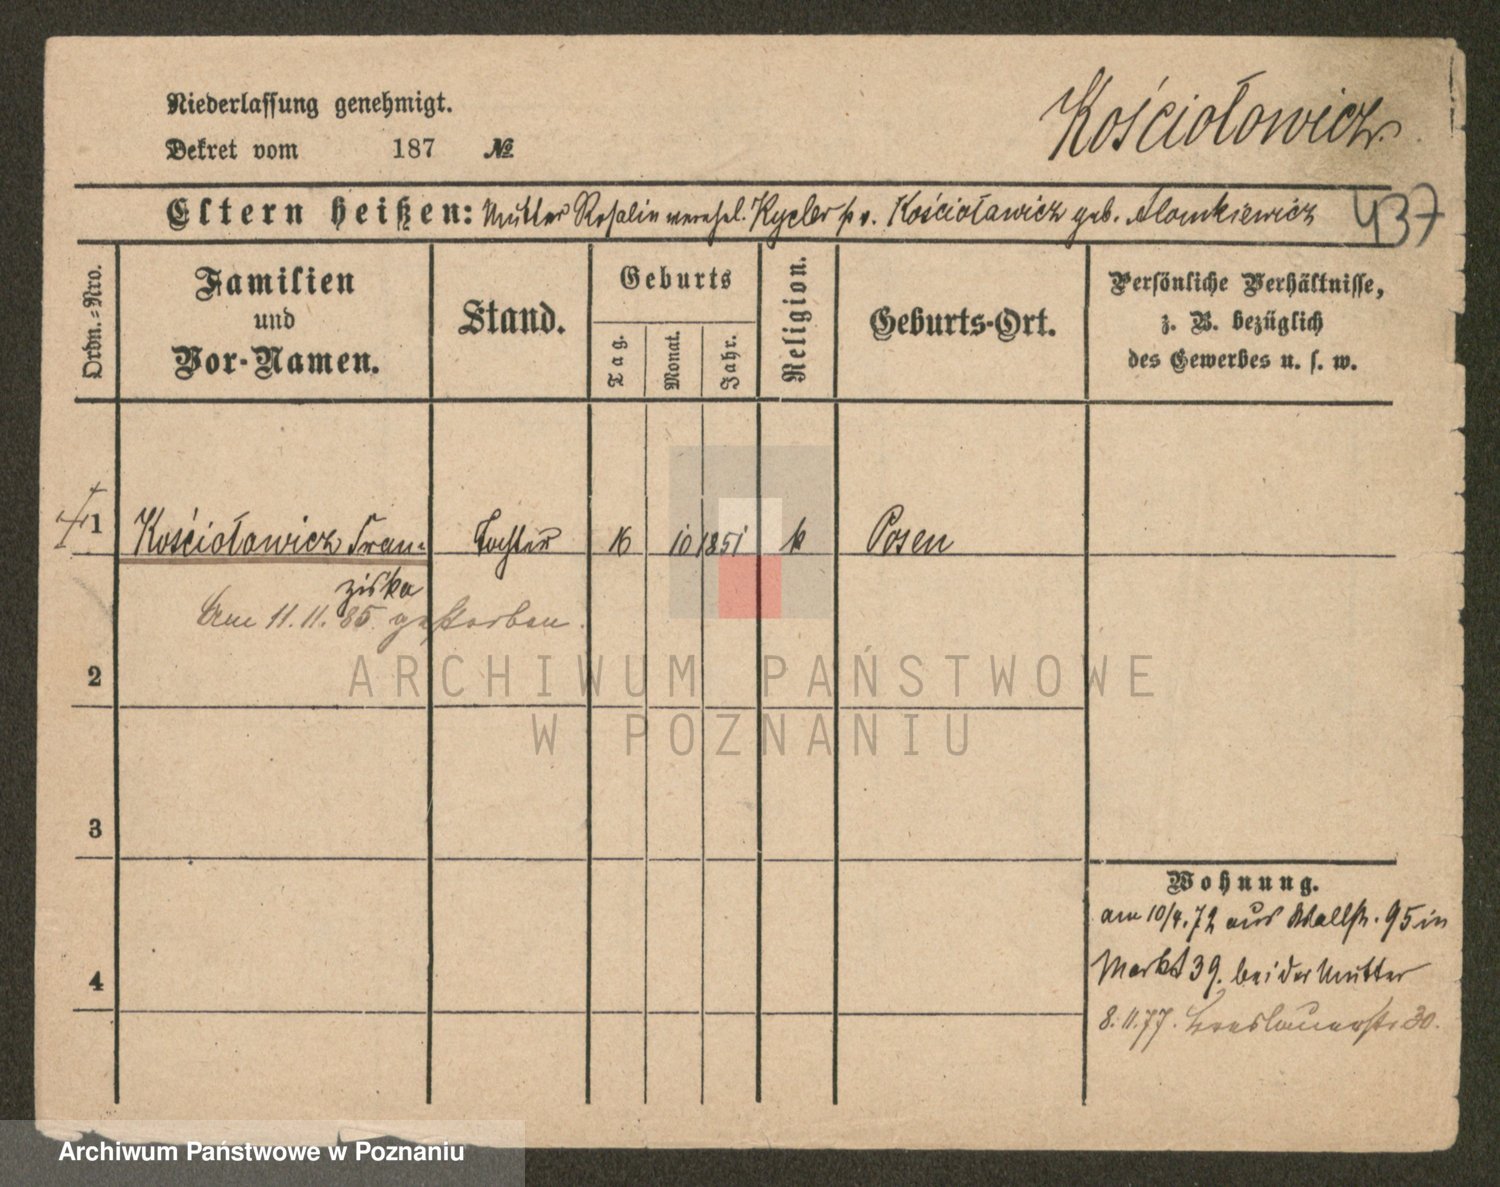 Niederlassung genehmigt.
Dekret vom 187 №
Kościołowicz
Eltern heißen: Mutter Rosalie verehel. Kycler p v. Kościoławicz geb.
437
Ordn.-Nro.
Familien
und
Vor-Namen.
Stand.
Geburts
Tag.
Monat.
Jahr.
Religion.
Geburts-Ort.
Persönliche Verhältnisse,
z. B. bezüglich
des Gewerbes u. s. w.
1 Kościoławicz Fran- Tochter 16 10 1851 k Posen
ziska
Am 11.11.85 gestorben.
2
3
4
Wohnung.
am 10/4.72 aus Wallstr. 95 in
Markt 39. bei der Mutter
8.11.77. Breslauerstr 30.
ARCHIWUM PAŃSTWOWE
W POZNANIU
Archiwum Państwowe w Poznaniu